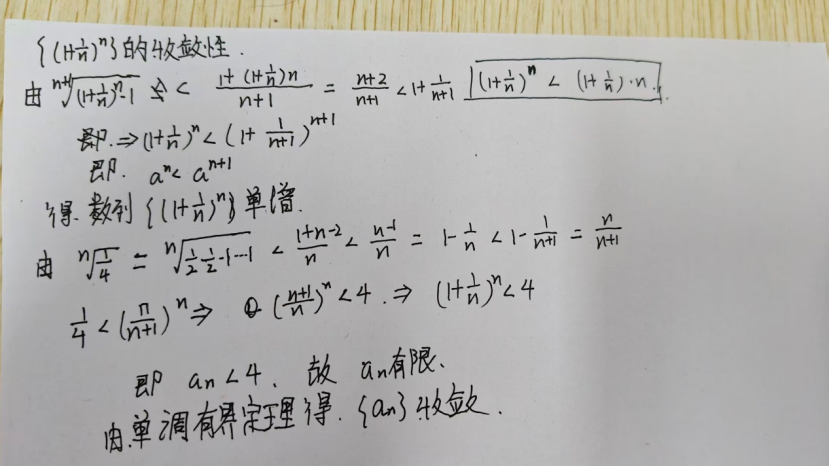 {(1+1/n)^n}的收敛性.
由 ^{n+1}√((1+1/n)^n·1) < (1+(1+1/n)n)/(n+1) = (n+2)/(n+1) < 1+1/(n+1) (1+1/n)^n < (1+1/n)·n.
即.⇒(1+1/n)^n < (1+1/(n+1))^{n+1}
即. a^n < a^{n+1}
得.数列{(1+1/n)^n}单增.
由 ^n√(1/4) = ^n√(1/2·1/2·1⋯1) < (1+n-2)/n < (n-1)/n = 1-1/n < 1-1/(n+1) = n/(n+1)
1/4 < (n/(n+1))^n ⇒ ((n+1)/n)^n < 4 .⇒ (1+1/n)^n < 4
即 an < 4 、故 an有限、
由.单调有界定理得.{an}收敛.